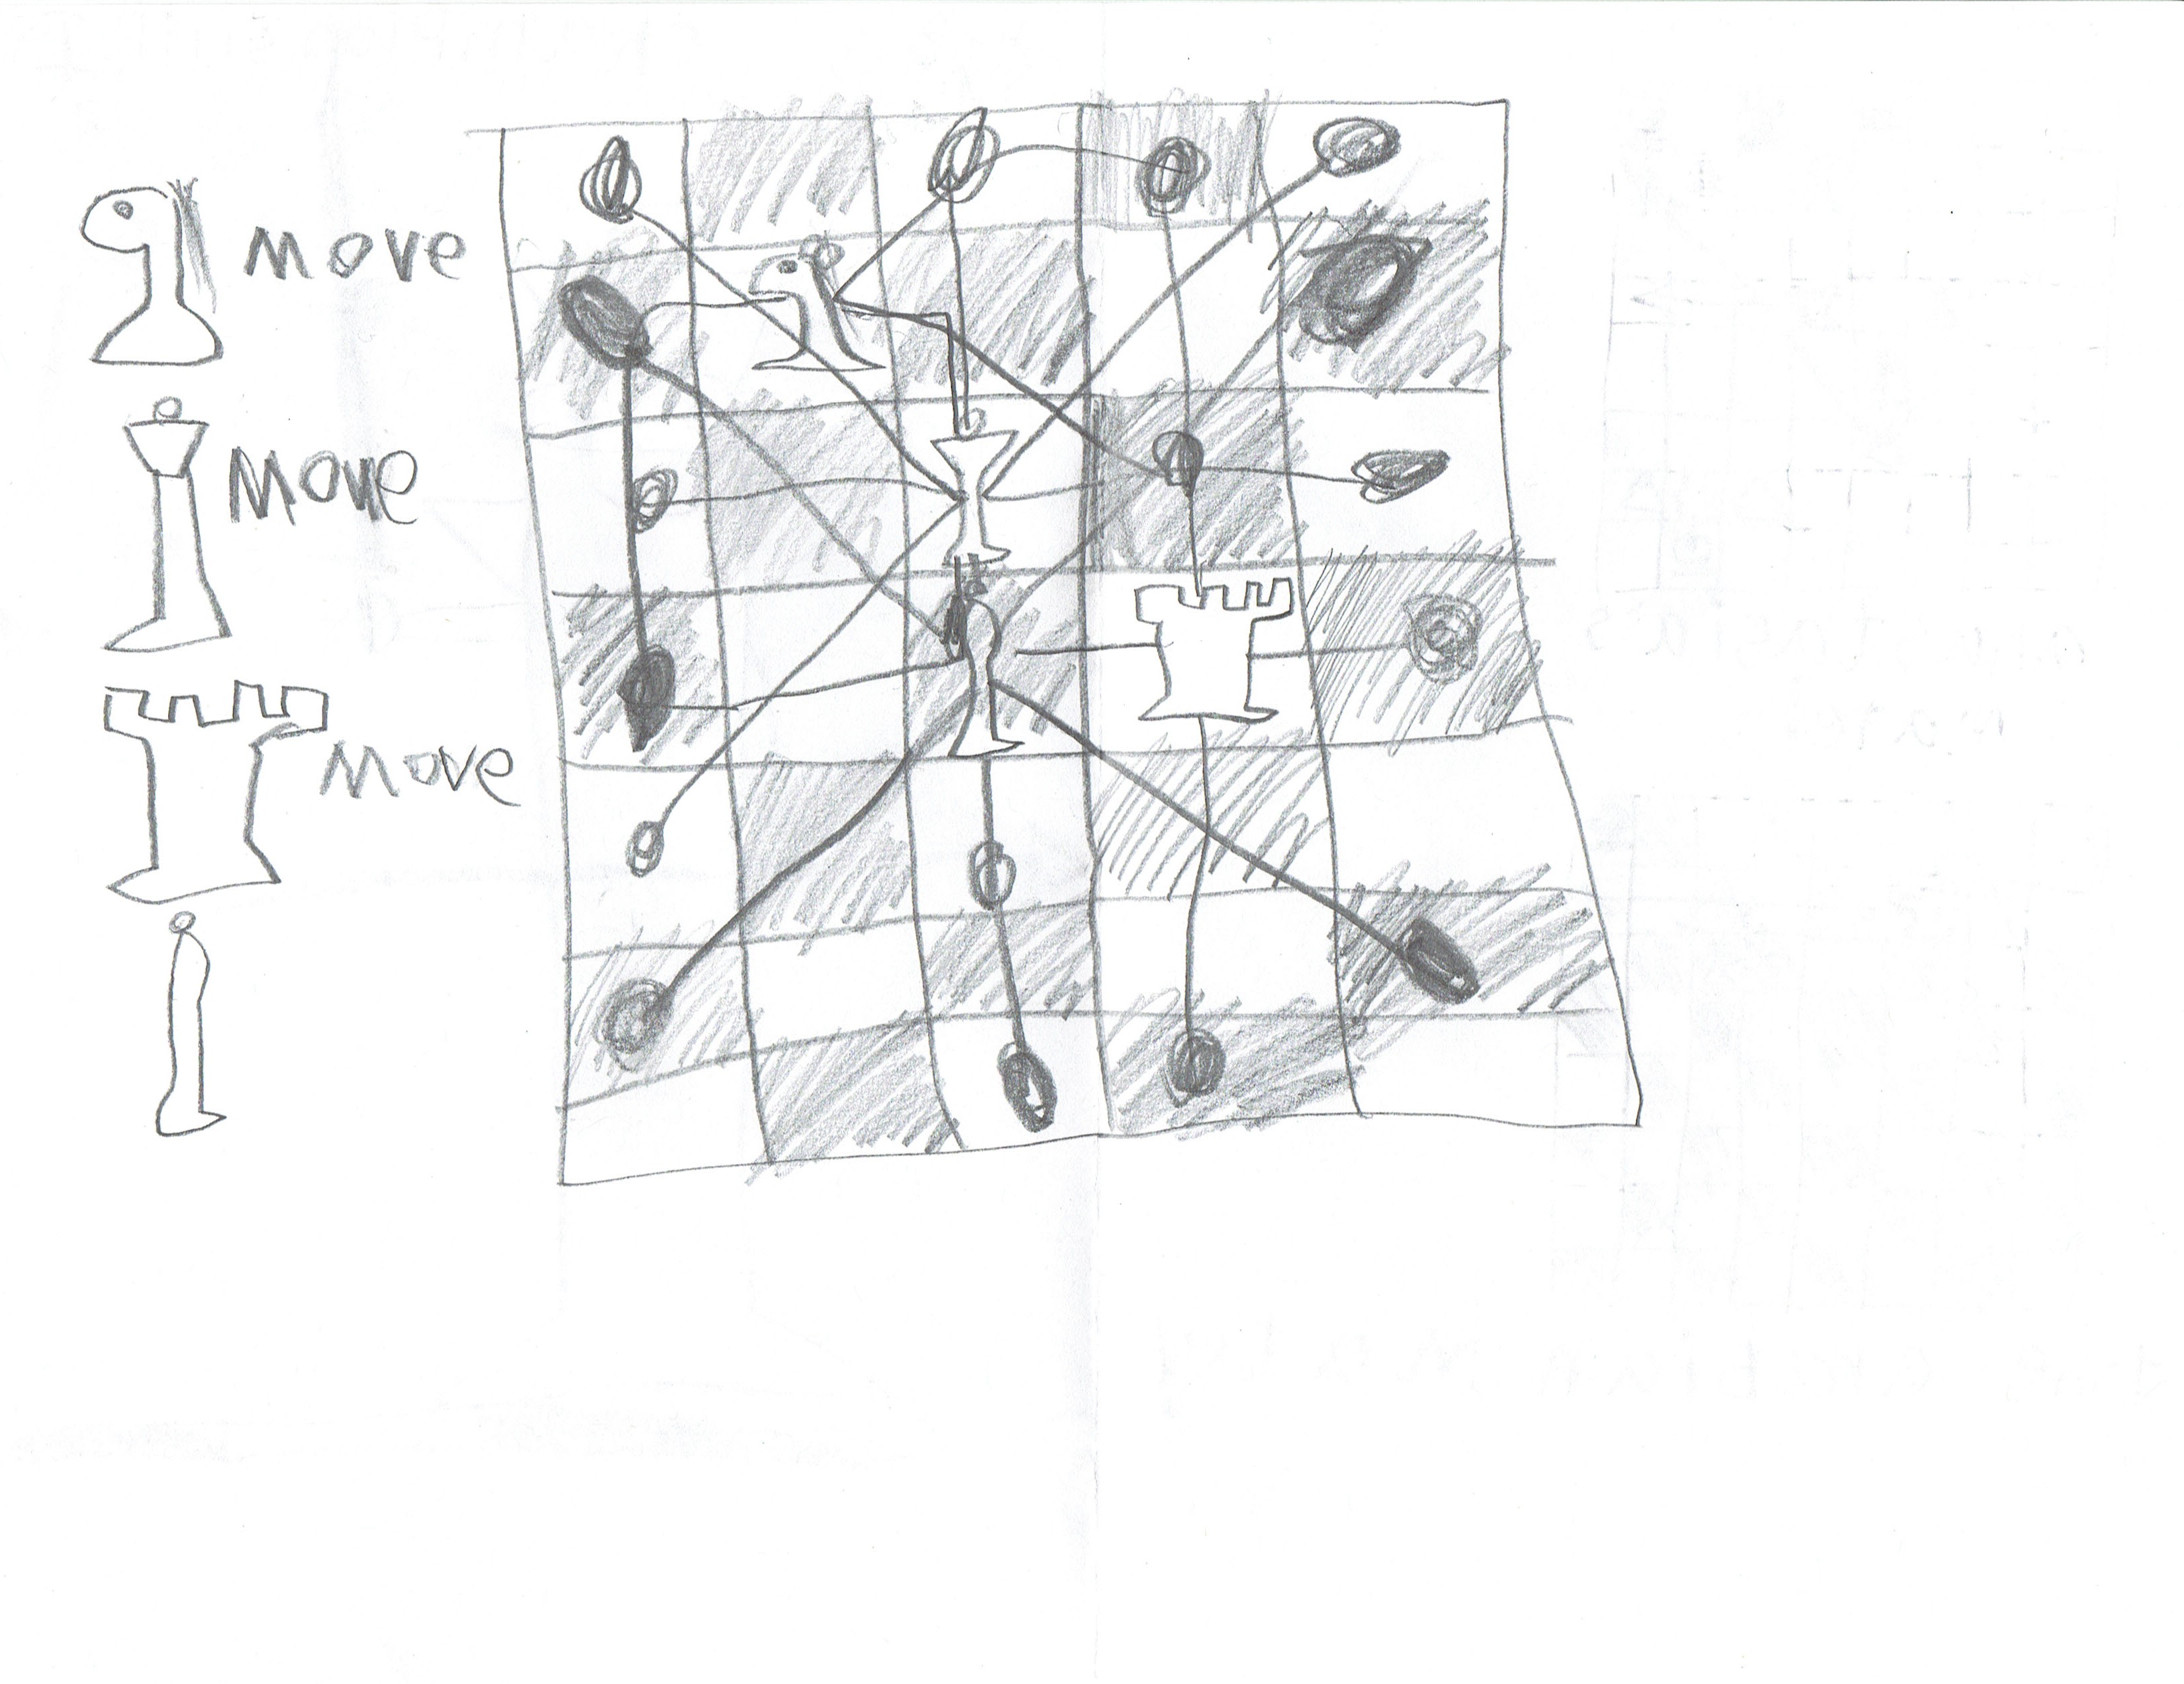 move
move
move